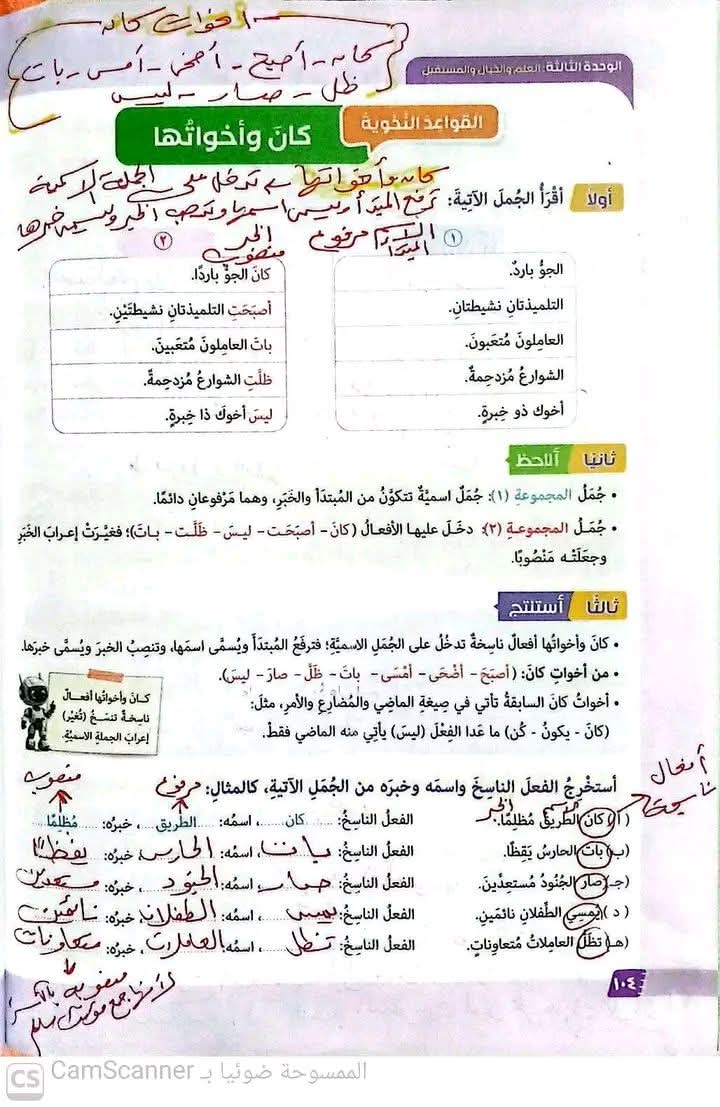 أخوات كان
كان - أصبح - أضحى - أمسى - بات
ظل - صار - ليس
الوحدة الثالثة: العلم والخيال والمستقبل
القواعد النحوية
كان وأخواتُها
كان وأخواتها تدخل على الجملة الاسمية
أولًا أقْرَأُ الجُملَ الآتيةَ:
ترفع المبتدأ ويسمى اسمها وتنصب الخبر ويسمى خبرها
الاسم مرفوع
المبتدأ
الخبر
منصوب
١
الجوُّ باردٌ.
التلميذتانِ نشيطتانِ.
العاملونَ مُتعَبونَ.
الشوارعُ مُزدحِمةٌ.
أخوك ذو خِبرةٍ.
٢
كانَ الجوُّ باردًا.
أصبَحَتِ التلميذتانِ نشيطتَيْنِ.
باتَ العاملونَ مُتعَبينَ.
ظلَّتِ الشوارعُ مُزدحِمةً.
ليسَ أخوكَ ذا خِبرةٍ.
ثانيًا ألاحظ
• جُمَلُ المجموعةِ (١): جُمَلٌ اسميَّةٌ تتكوَّنُ من المُبتدَأ والخَبَرِ، وهما مَرْفوعانِ دائمًا.
• جُمَلُ المجموعةِ (٢): دخَلَ عليها الأفعالُ (كانَ - أصبَحَت - ليسَ - ظَلَّت - باتَ)؛ فغيَّرَتْ إعرابَ الخَبَرِ
وجعلَتْه مَنْصُوبًا.
ثالثًا أستنتج
• كانَ وأخواتُها أفعالٌ ناسِخةٌ تدخُلُ على الجُمَلِ الاسميَّةِ؛ فترفَعُ المُبتدَأَ ويُسمَّى اسمَها، وتنصِبُ الخبرَ ويُسمَّى خبرَها.
• من أخواتِ كانَ: (أصبَحَ - أضْحَى - أمْسَى - باتَ - ظَلَّ - صارَ - ليسَ).
• أخواتُ كانَ السابقةُ تأتي في صِيغةِ الماضِي والمُضارِعِ والأمرِ، مثلَ:
(كانَ - يكونُ - كُن) ما عَدا الفِعْلَ (ليسَ) يأتي منه الماضي فقطْ.
كـانَ وأخواتُها أفعـالٌ
ناسِخةٌ تنسَـخُ (تُغيِّر)
إعرابَ الجملةِ الاسميَّةِ.
أستخْرِجُ الفعلَ الناسِخَ واسمَه وخبرَه من الجُمَلِ الآتيةِ، كالمثالِ:
أفعال
ناسخة
مرفوع
منصوب
الاسم
الخبر
( أ ) كانَ الطريقُ مُظلِمًا. الفعل الناسِخُ: كان، اسمُه: الطَّريق، خبرُه: مُظلِمًا
(ب) باتَ الحارسُ يَقِظًا. الفعل الناسِخُ: بات، اسمُه: الحارس، خبرُه: يقظًا
(جـ) صارَ الجُنودُ مُستعِدِّينَ. الفعل الناسِخُ: صار، اسمُه: الجنود، خبرُه: مستعدين
( د ) يُمسِي الطِّفلانِ نائمَينِ. الفعل الناسِخُ: يمسى، اسمُه: الطفلان، خبرُه: نائمين
(هـ) تظَلُّ العاملاتُ مُتعاوِناتٍ. الفعل الناسِخُ: تظل، اسمُه: العاملات، خبرُه: متعاونات
منصوبة بالكسرة
لأنها جمع مؤنث سالم
١٠٤
CS CamScanner الممسوحة ضوئيا بـ